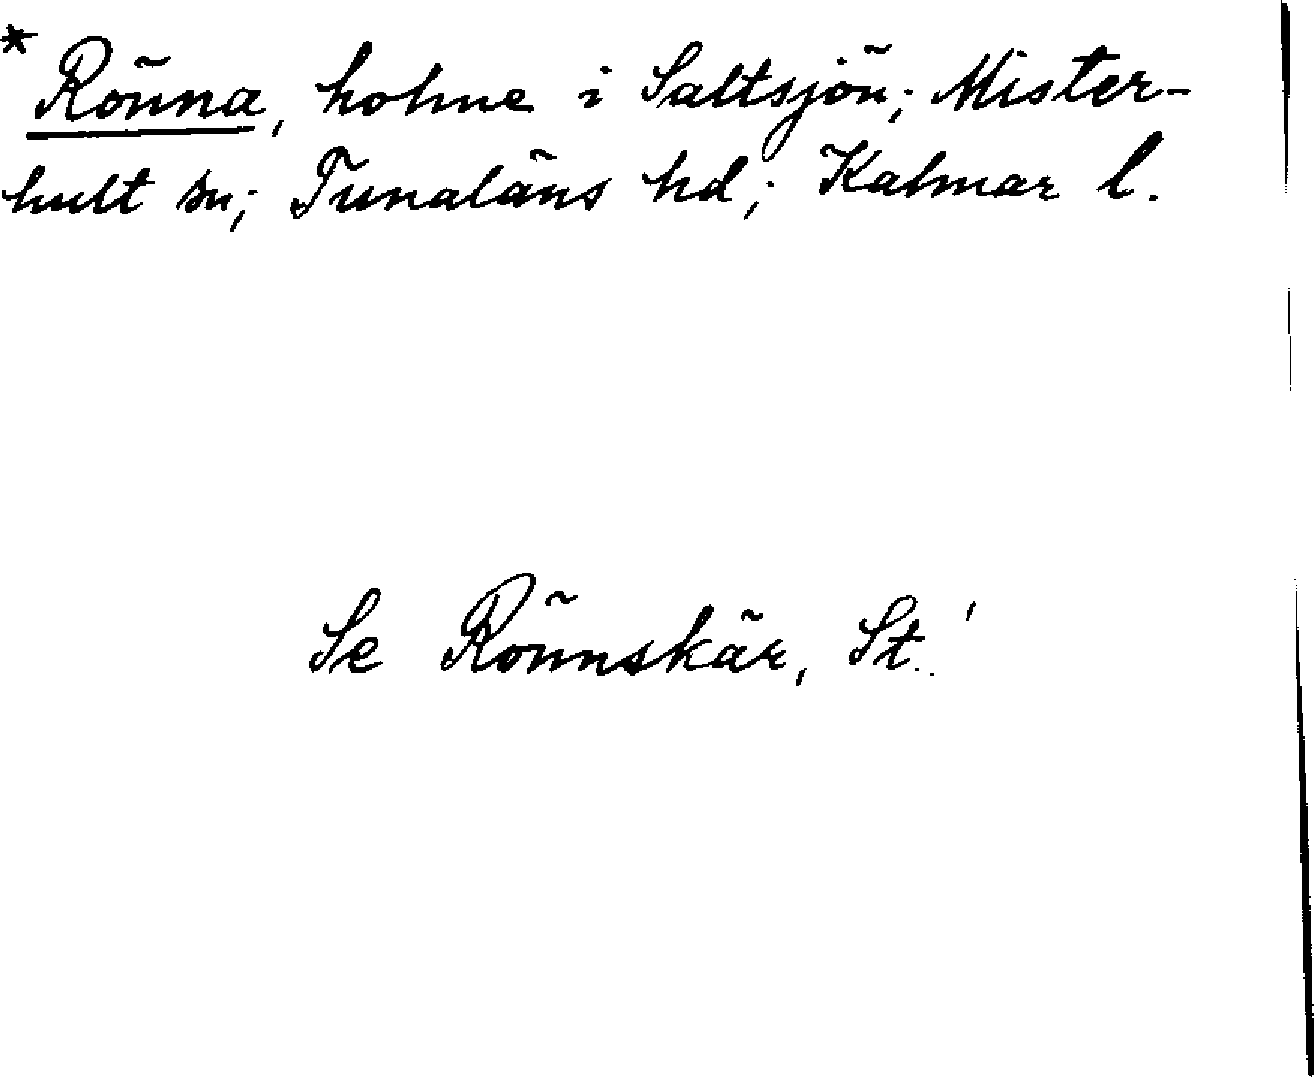 * Rönna, holme i Saltsjön; Mister-
hult sn; Tunaläns hd; Kalmar l.
Se Rönnskär, St.!